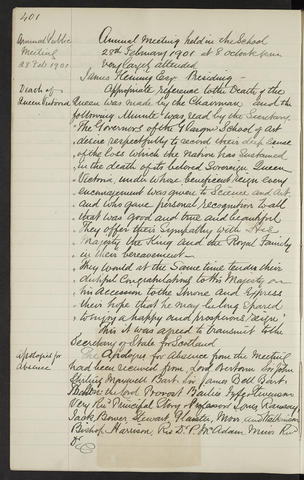 401
Annual Public
Meeting
28 Feb 1901
Annual Meeting held in the School
28th February 1901 at 8 o'clock p.m.
very largely attended
James Fleming Esqr Presiding –
Death of
Queen Victoria
Appropriate reference to the Death of the
Queen was made by the Chairman and the
following Minute was read by the Secretary
"The Governors of the Glasgow School of Art
desire respectfully to record their deep sense
of the loss which the Nation has sustained
in the death of its beloved Sovereign Queen
Victoria, under whose beneficent Reign every
encouragement was given to Science and Art
and who gave personal recognition to all
that was good and true and beautiful
They offer their Sympathy with His
Majesty the King and the Royal Family
in their bereavement –
They would at the Same time tender their
dutiful Congratulations to His Majesty on
his Accession to the throne and Express
their hope that he may be long Spared
to enjoy a happy and prosperous reign"
This it was agreed to transmit to the
Secretary of State for Scotland
Apologies for
Absence
The Apologies for Absence from the Meeting
had been received from Lord Overtoun Sir John
Stirling Maxwell Bart. Sir James Bell Bart.
the Lord Provost Bailie Ferguson
Very Revd Principal Story Professors Ramsay,
Jack, Bower, Stewart, Glaister, Moore
Bishop Harrison, Rev Dr. P. McAdam Muir Rev
Dr